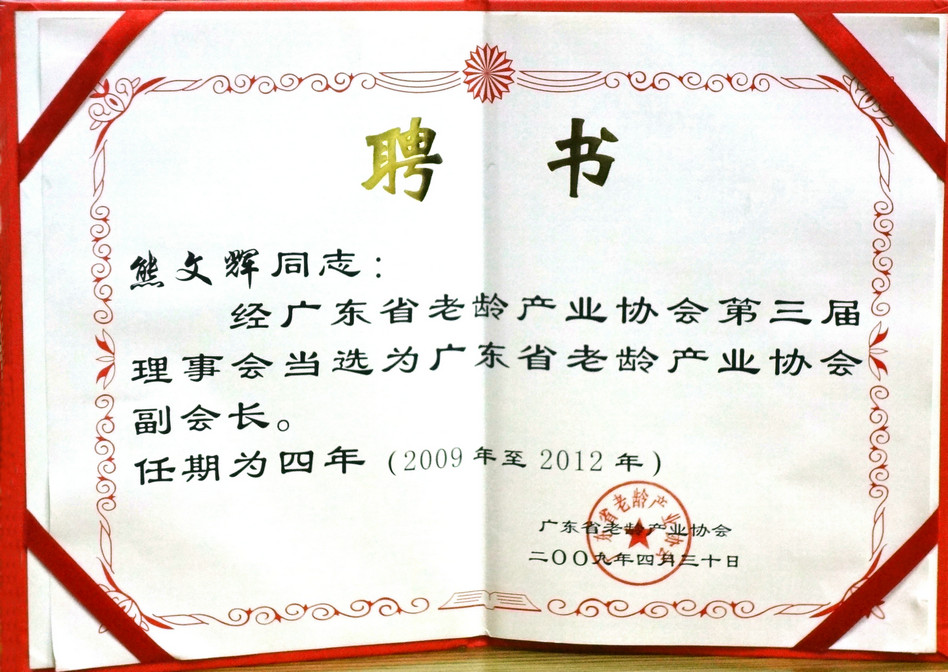 聘书
熊文辉同志：
经广东省老龄产业协会第三届
理事会当选为广东省老龄产业协会
副会长。
任期为四年（2009年至2012年）
广东省老龄产业协会
二〇〇九年四月三十日
广东省老龄产业协会